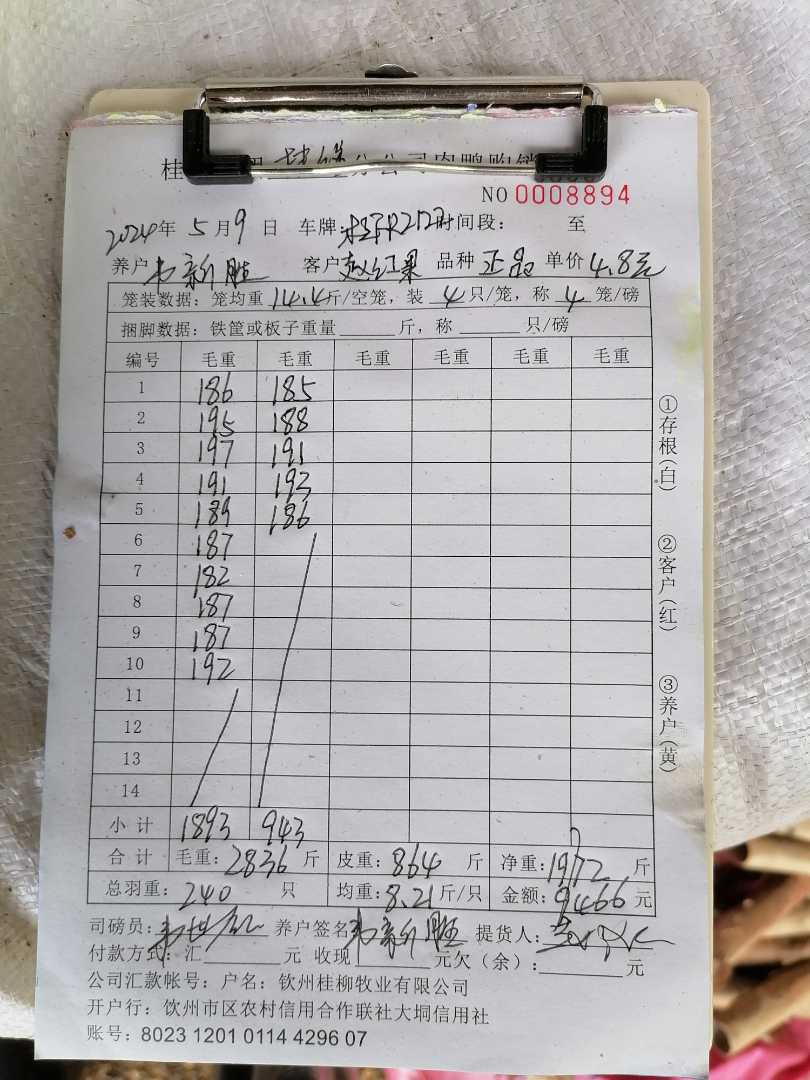 桂 分公司肉鸭购销
NO 0008894
2024年 5月9日 车牌: 时间段: 至
养户韦新胜 客户赵红果 品种 正品 单价4.8元
笼装数据: 笼均重 14.4斤/空笼, 装 4 只/笼, 称 4 笼/磅
捆脚数据: 铁筐或板子重量______斤, 称______只/磅
编号 毛重 毛重 毛重 毛重 毛重 毛重
1 186 185
2 195 188
3 197 191
4 191 193
5 189 186
6 187
7 182
8 187
9 187
10 192
11
12
13
14
小计 1893 943
合计 毛重:2836 斤 皮重:864 斤 净重:1972 斤
总羽重: 240 只 均重:8.21斤/只 金额:9466元
司磅员: 养户签名韦新胜 提货人:
付款方式: 汇______元 收现______元欠(余):______元
公司汇款帐号: 户名: 钦州桂柳牧业有限公司
开户行: 钦州市区农村信用合作联社大垌信用社
账号: 8023 1201 0114 4296 07
①存根(白)
②客户(红)
③养户(黄)